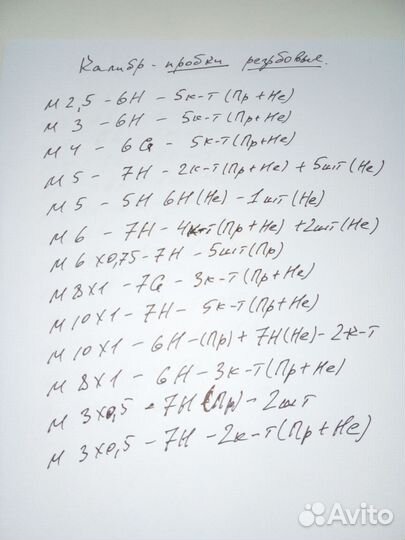 Калибр-пробки резьбовые.
М 2,5 - 6Н - 5к-т (Пр + Не)
М 3 - 6Н - 5к-т (Пр+Не)
М 4 - 6G - 5к-т (Пр+Не)
М 5 - 7Н - 2к-т (Пр+Не) + 5шт (Не)
М 5 - 5Н 6Н (Не) - 1шт (Не)
М 6 - 7Н - 4к-т (Пр+Не) +2шт (Не)
М 6 х0,75 - 7Н - 5шт (Пр)
М 8х1 - 7G - 3к-т (Пр+Не)
М 10х1 - 7Н - 5к-т (Пр+Не)
М 10х1 - 6Н - (Пр) + 7Н (Не) - 2к-т
М 8х1 - 6Н - 3к-т (Пр+Не)
М 3х0,5 - 7Н (Пр) - 2шт
М 3х0,5 - 7Н - 2к-т (Пр+Не)
Avito